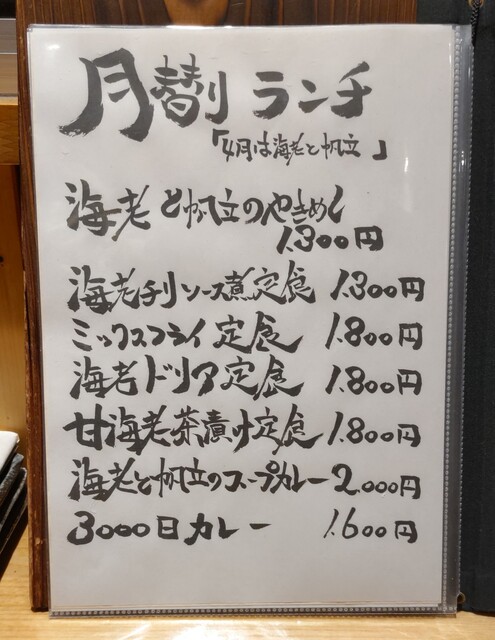 月替り ランチ
「4月は海老と帆立」
海老と帆立のやきめし
1.300円
海老チリソース煮定食 1.300円
ミックスフライ定食 1.800円
海老ドリア定食 1.800円
甘海老茶漬け定食 1.800円
海老と帆立のスープカレー 2.000円
3000日カレー 1.600円